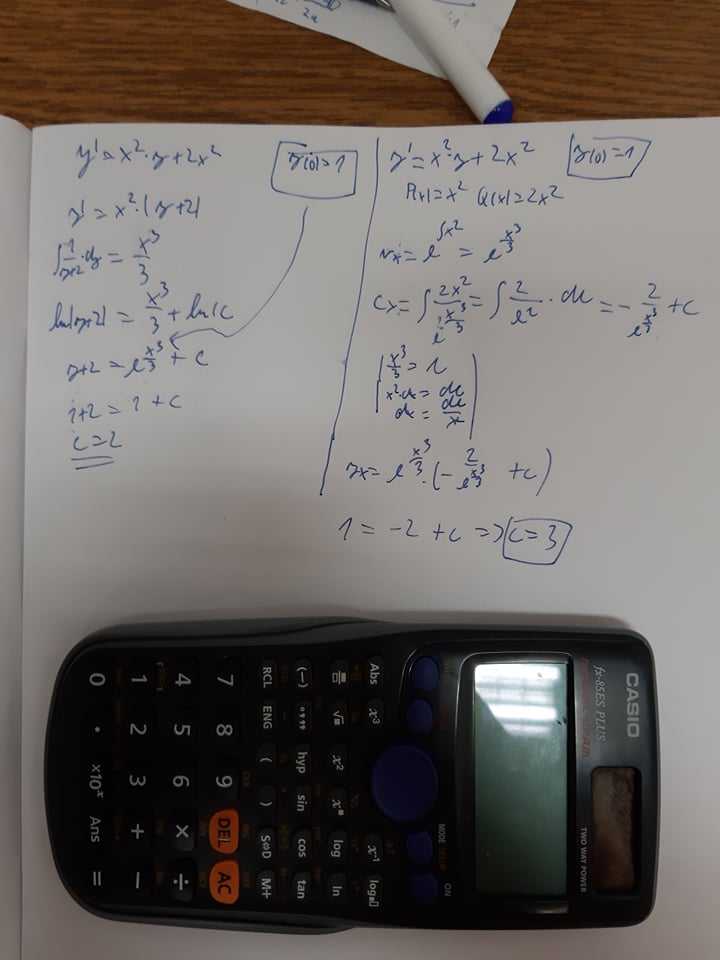 2a
y' = x²·y + 2x²
y(0)=1
y' = x²·(y+2)
∫ 1/(y+2) · dy = x³/3
ln|y+2| = x³/3 + ln|c
y+2 = e^(x³/3) + c
1+2 = 1 + c
c = 2
y' = x²·y + 2x²
y(0)=1
P(x)=x² Q(x)=2x²
e^(∫x²) = e^(x³/3)
cx = ∫ 2x²/e^(x³/3) = ∫ 2/e^z · dz = - 2/e^(x³/3) + c
x³/3 = z
x²dx = dz
dx = dz/x
yx = e^(x³/3) · (- 2/e^(x³/3) + c)
1 = -2 + c => c = 3
CASIO
fx-85ES PLUS
TWO WAY POWER
MODE ON
Abs x³ x⁻¹ log□
√ x² x■ log ln
(−) °’” hyp sin cos tan
RCL ENG ( ) S⇔D M+
7 8 9 DEL AC
4 5 6 × ÷
1 2 3 + −
0 • ×10ˣ Ans =